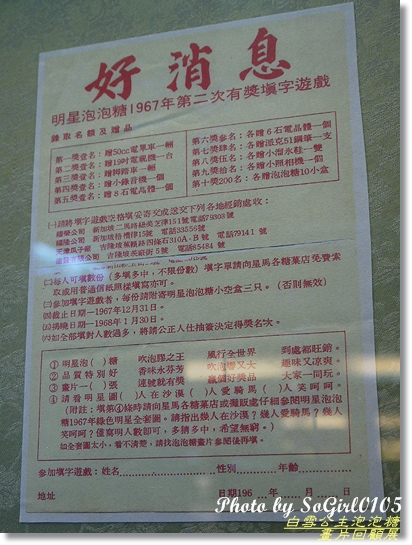 好消息
明星泡泡糖1967年第二次有獎填字遊戲
錄取名額及贈品
第一獎壹名：贈50cc電單車一輛
第二獎壹名：贈19吋電視機一台
第三獎壹名：贈脚踏車一輛
第四獎壹名：贈小錄音機一個
第五獎壹名：贈８石電晶体一個
第六獎參名：各贈６石電晶體一個
第七獎肆名：各贈派克51鋼筆一支
第八獎伍名：各贈小溜氷鞋一雙
第九獎拾名：各贈小照相機一個
第十獎200名：各贈泡泡糖10小盒
㈠請將填字遊戲空格填妥寄交或送交下列各地經銷處收：
㈡每人可填數份（多填多中，不限份數）填字單請向星馬各糖菓店免費索
取或用普通信紙照樣填寫亦可。
㈢參加填字遊戲者，每份請附寄明星泡泡糖小空盒三只。（否則無效）
㈣截止日期—1967年12月31日。
㈤揭曉日期—1968年1月30日。
㈥如全部填對人數過多，將請公正人仕抽簽决定得獎名次。
①明星泡（　）糖　吹泡膠之王　風行全世界　到處都旺銷。
②品質特別好　香味永芬芳　吹泡響又大　趣味又凉爽。
③畫片一（　）張　連號就有獎　贏個好獎品　大家一同玩。
④請看明星圖（　）人在沙漠（　）人愛騎馬（　）人笑呵呵。
（附註：填第④條時請向星馬各糖菓店或攤販處仔細參閱明星泡泡
糖1967年綠色明星全套圖。請指出幾人在沙漠？幾人愛騎馬？幾人
笑呵呵？僅寫明人數即可，多猜多中，希望無窮。）
如全套圖太小，看不清楚，請找泡泡糖畫片參閱後再填。
參加填字遊戲：姓名　性別　年齡
地址　日期196　年　月　日
Photo by SoGirl0105
白雪公主泡泡糖
畫片回顧展